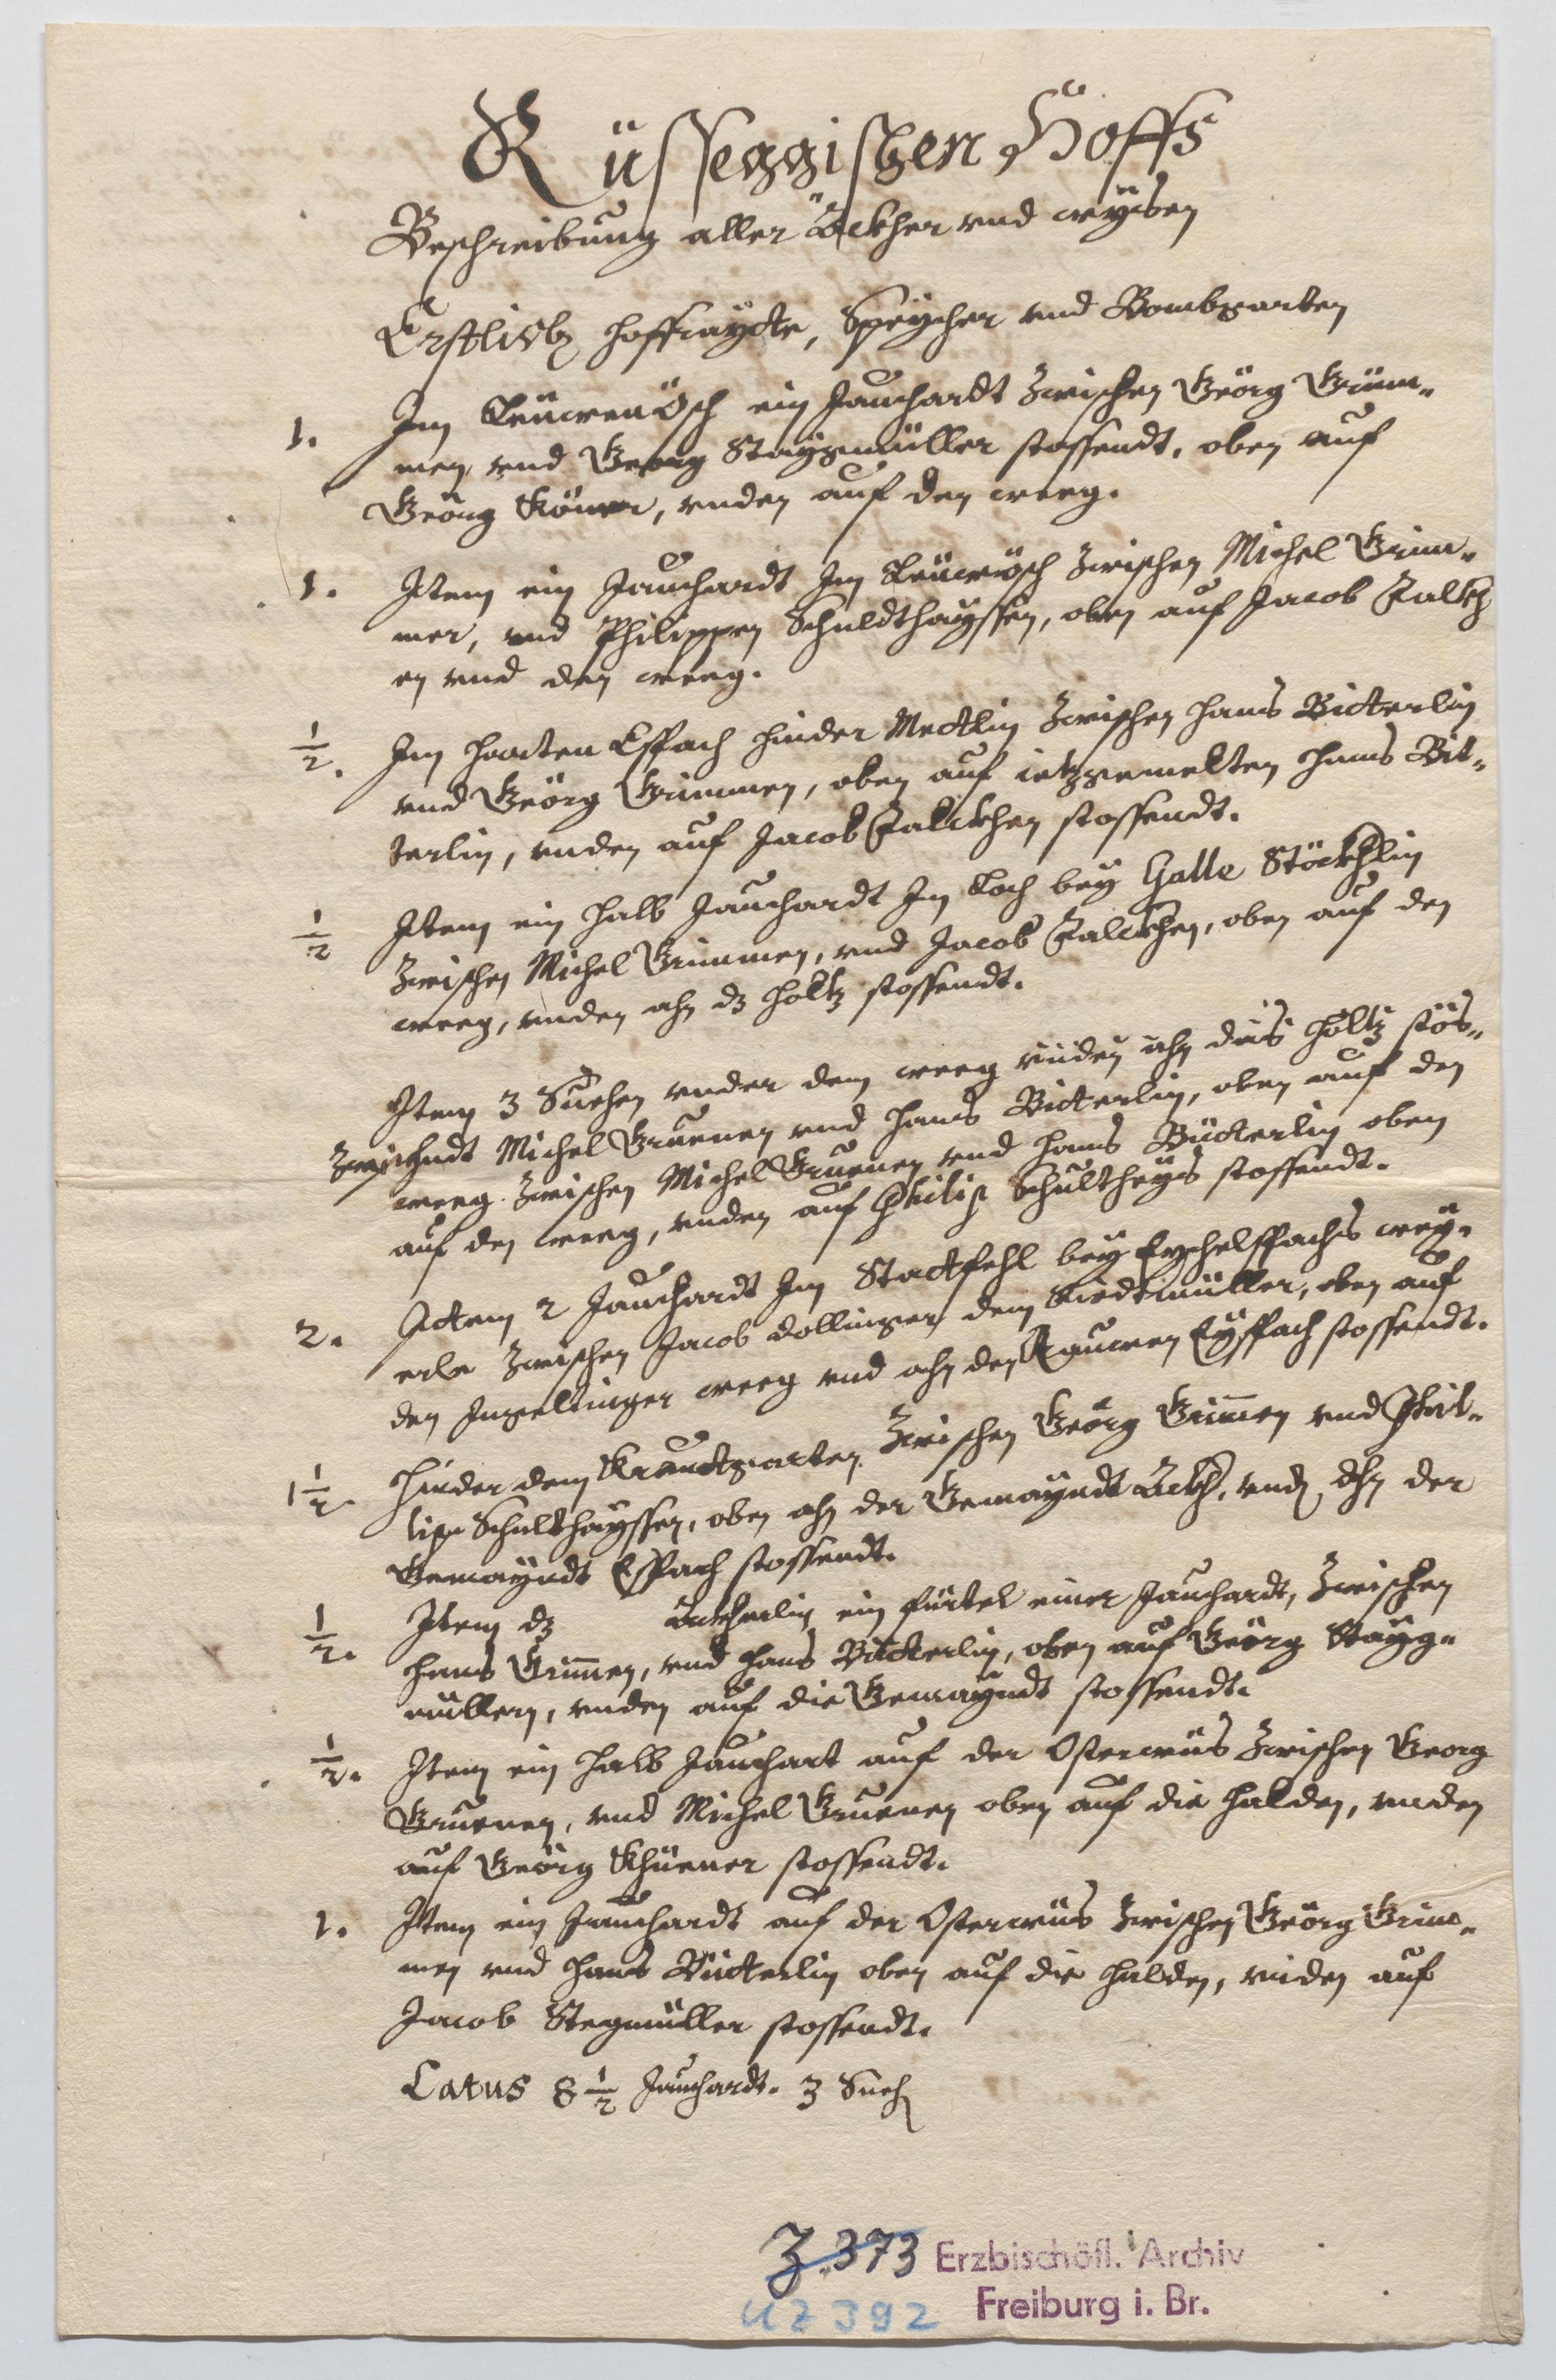 Rüsseggischen Hoffs
Beschreibung aller Äckher vnd wysen
Erstlich hoffraytte, Speycher vnd Bombgarten
1. Im Leuwenösch ein Jauchardt Zwischen Geörg Grüm-
men vnd Georg Staygmüller stossendt, oben auf
Geörg Köner, vnden auf den weeg.
1. Item ein Jauchardt Im Leuwösch Zwischen Michel Grim-
mer, vnd Philippen Schuldthayssen, oben auf Jacob Falckh
en vnd den weeg.
1/2. Im harten Espach hinder Mettlin Zwischen Hans Bitterlin
vnd Geörg Grimmen, oben auf ietzgemelten Hans Bit-
terlin, vnden auf Jacob Falckhen stossendt.
1/2 Item ein halb Jauchardt Im Loch bey Galle Stöckhlin
Zwischen Michel Grimmen, vnd Jacob Falckhen, oben auf den
weeg, vnden ahn dz holtz stossendt.
Item 3 Suehen vnder dem weeg vnden ahn das holtz stös-
sendt Michel Gruenen vnd Hans Bitterlin, oben auf den
weeg. Zwischen Michel Gruenen vnd Hans Bütterlin oben
auf den weeg, vnden auf Philip Schultheys stossendt.
2. Ittem 2 Jauchardt Im Stattfehl bey Eychelspachs wey-
erle Zwischen Jacob dollinger dem Riedtmüller, oben auf
den Ingeltinger weeg vnd ahn den Rauwen Eyspach stossendt.
1 1/2. Hinder dem Krauttgarten Zwischen Geörg Grimmen vnd Phil-
lips Schulthayssen, oben ahn der Gemayndt Äckh, vnd ahn der
Gemayndt Espach stossendt.
1/2. Item dz Äckherlin ein fürtel einer Jauchardt, Zwischen
Hans Grimmen, vnd Hans Bitterlin, oben auf Geörg Stayg-
müllern, vnden auf die Gemayndt stossendt.
1/2. Item ein halb Jauchart auf der Osterwüs Zwischen Georg
Gruenen, vnd Michel Gruenen oben auf die halden, vnden
auf Geörg Khüener stossendt.
1. Item ein Jauchardt auf der Osterwüs Zwischen Geörg Grim-
men vnd Hans Bütterlin oben auf die halden, vnden auf
Jacob Stegmüller stossendt.
Latus 8 1/2 Jauchardt. 3 Sueh
Z. 373 Erzbischöfl. Archiv
UZ 392 Freiburg i. Br.